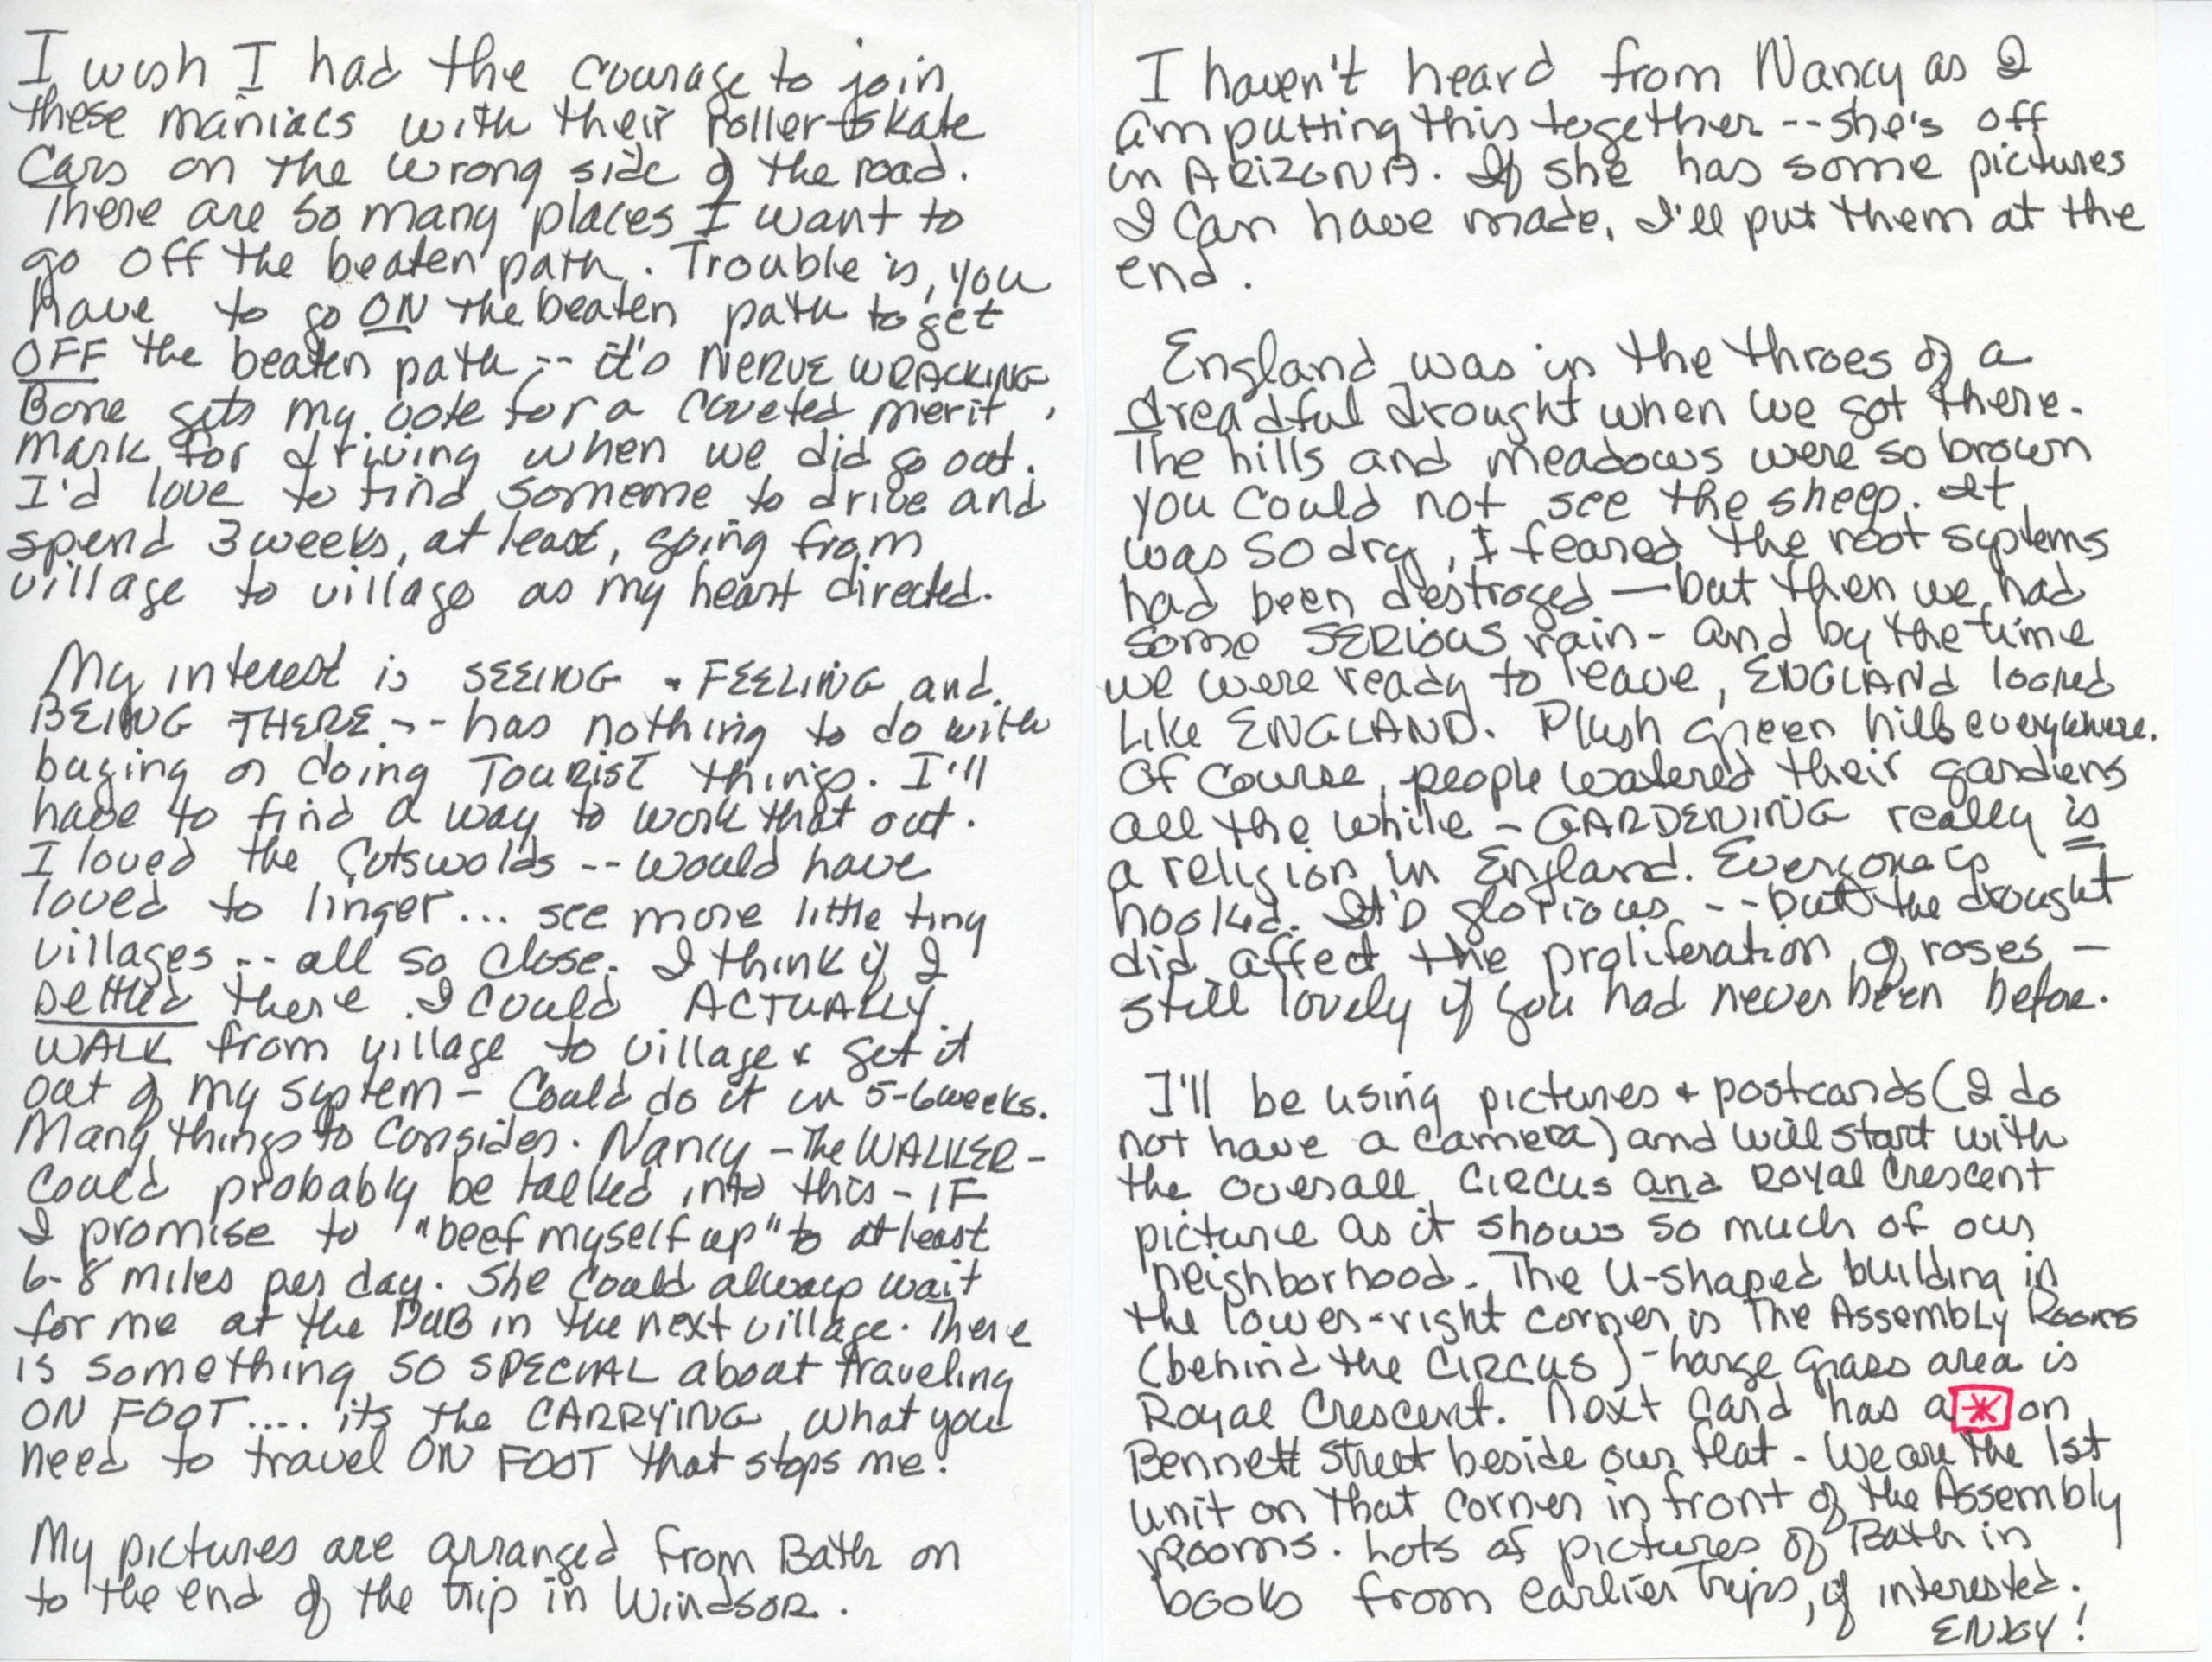 I wish I had the courage to join
these maniacs with their roller-skate
cars on the wrong side of the road.
There are so many places I want to
go off the beaten path. Trouble is, you
have to go ON the beaten path to get
OFF the beaten path -- it's NERVE WRACKING.
Bone gets my vote for a coveted merit
mark for driving when we did go out.
I'd love to find someone to drive and
spend 3 weeks, at least, going from
village to village as my heart directed.
My interest is SEEING - FEELING and
BEING THERE -- has nothing to do with
buying or doing TOURIST things. I'll
have to find a way to work that out.
I loved the Cotswolds -- would have
loved to linger... see more little tiny
villages -- all so close. I think if I
settled there I could ACTUALLY
WALK from village to village & get it
out of my system - Could do it in 5-6 weeks.
Many things to consider. Nancy - The WALKER -
could probably be talked into this - IF
I promise to "beef myself up" to at least
6-8 miles per day. She could always wait
for me at the PUB in the next village. There
is something SO SPECIAL about traveling
ON FOOT.... its the CARRYING what you
need to travel ON FOOT that stops me!
My pictures are arranged from Bath on
to the end of the trip in Windsor.
I haven't heard from Nancy as I
am putting this together -- she's off
in ARIZONA. If she has some pictures
I can have made, I'll put them at the
end.
England was in the throes of a
dreadful drought when we got there.
The hills and meadows were so brown
you could not see the sheep. It
was so dry, I feared the root systems
had been destroyed — but then we had
some SERIOUS rain - and by the time
we were ready to leave, ENGLAND looked
Like ENGLAND. Plush green hills everywhere.
Of course, people watered their gardens
all the while - GARDENING really is
a religion in England. Everyone is
hooked. It's glorious -- but the drought
did affect the proliferation of roses -
still lovely if you had never been before.
I'll be using pictures + postcards (I do
not have a camera) and will start with
the overall CIRCUS and ROYAL Crescent
picture as it shows so much of our
neighborhood. The U-shaped building in
the lower-right corner is The Assembly Rooms
(behind the CIRCUS) - Large grass area is
Royal Crescent. Next card has a * on
Bennett Street beside our flat - We are the 1st
unit on that corner in front of the Assembly
Rooms. Lots of pictures of Bath in
books from earlier Trips, if interested.
ENJOY!